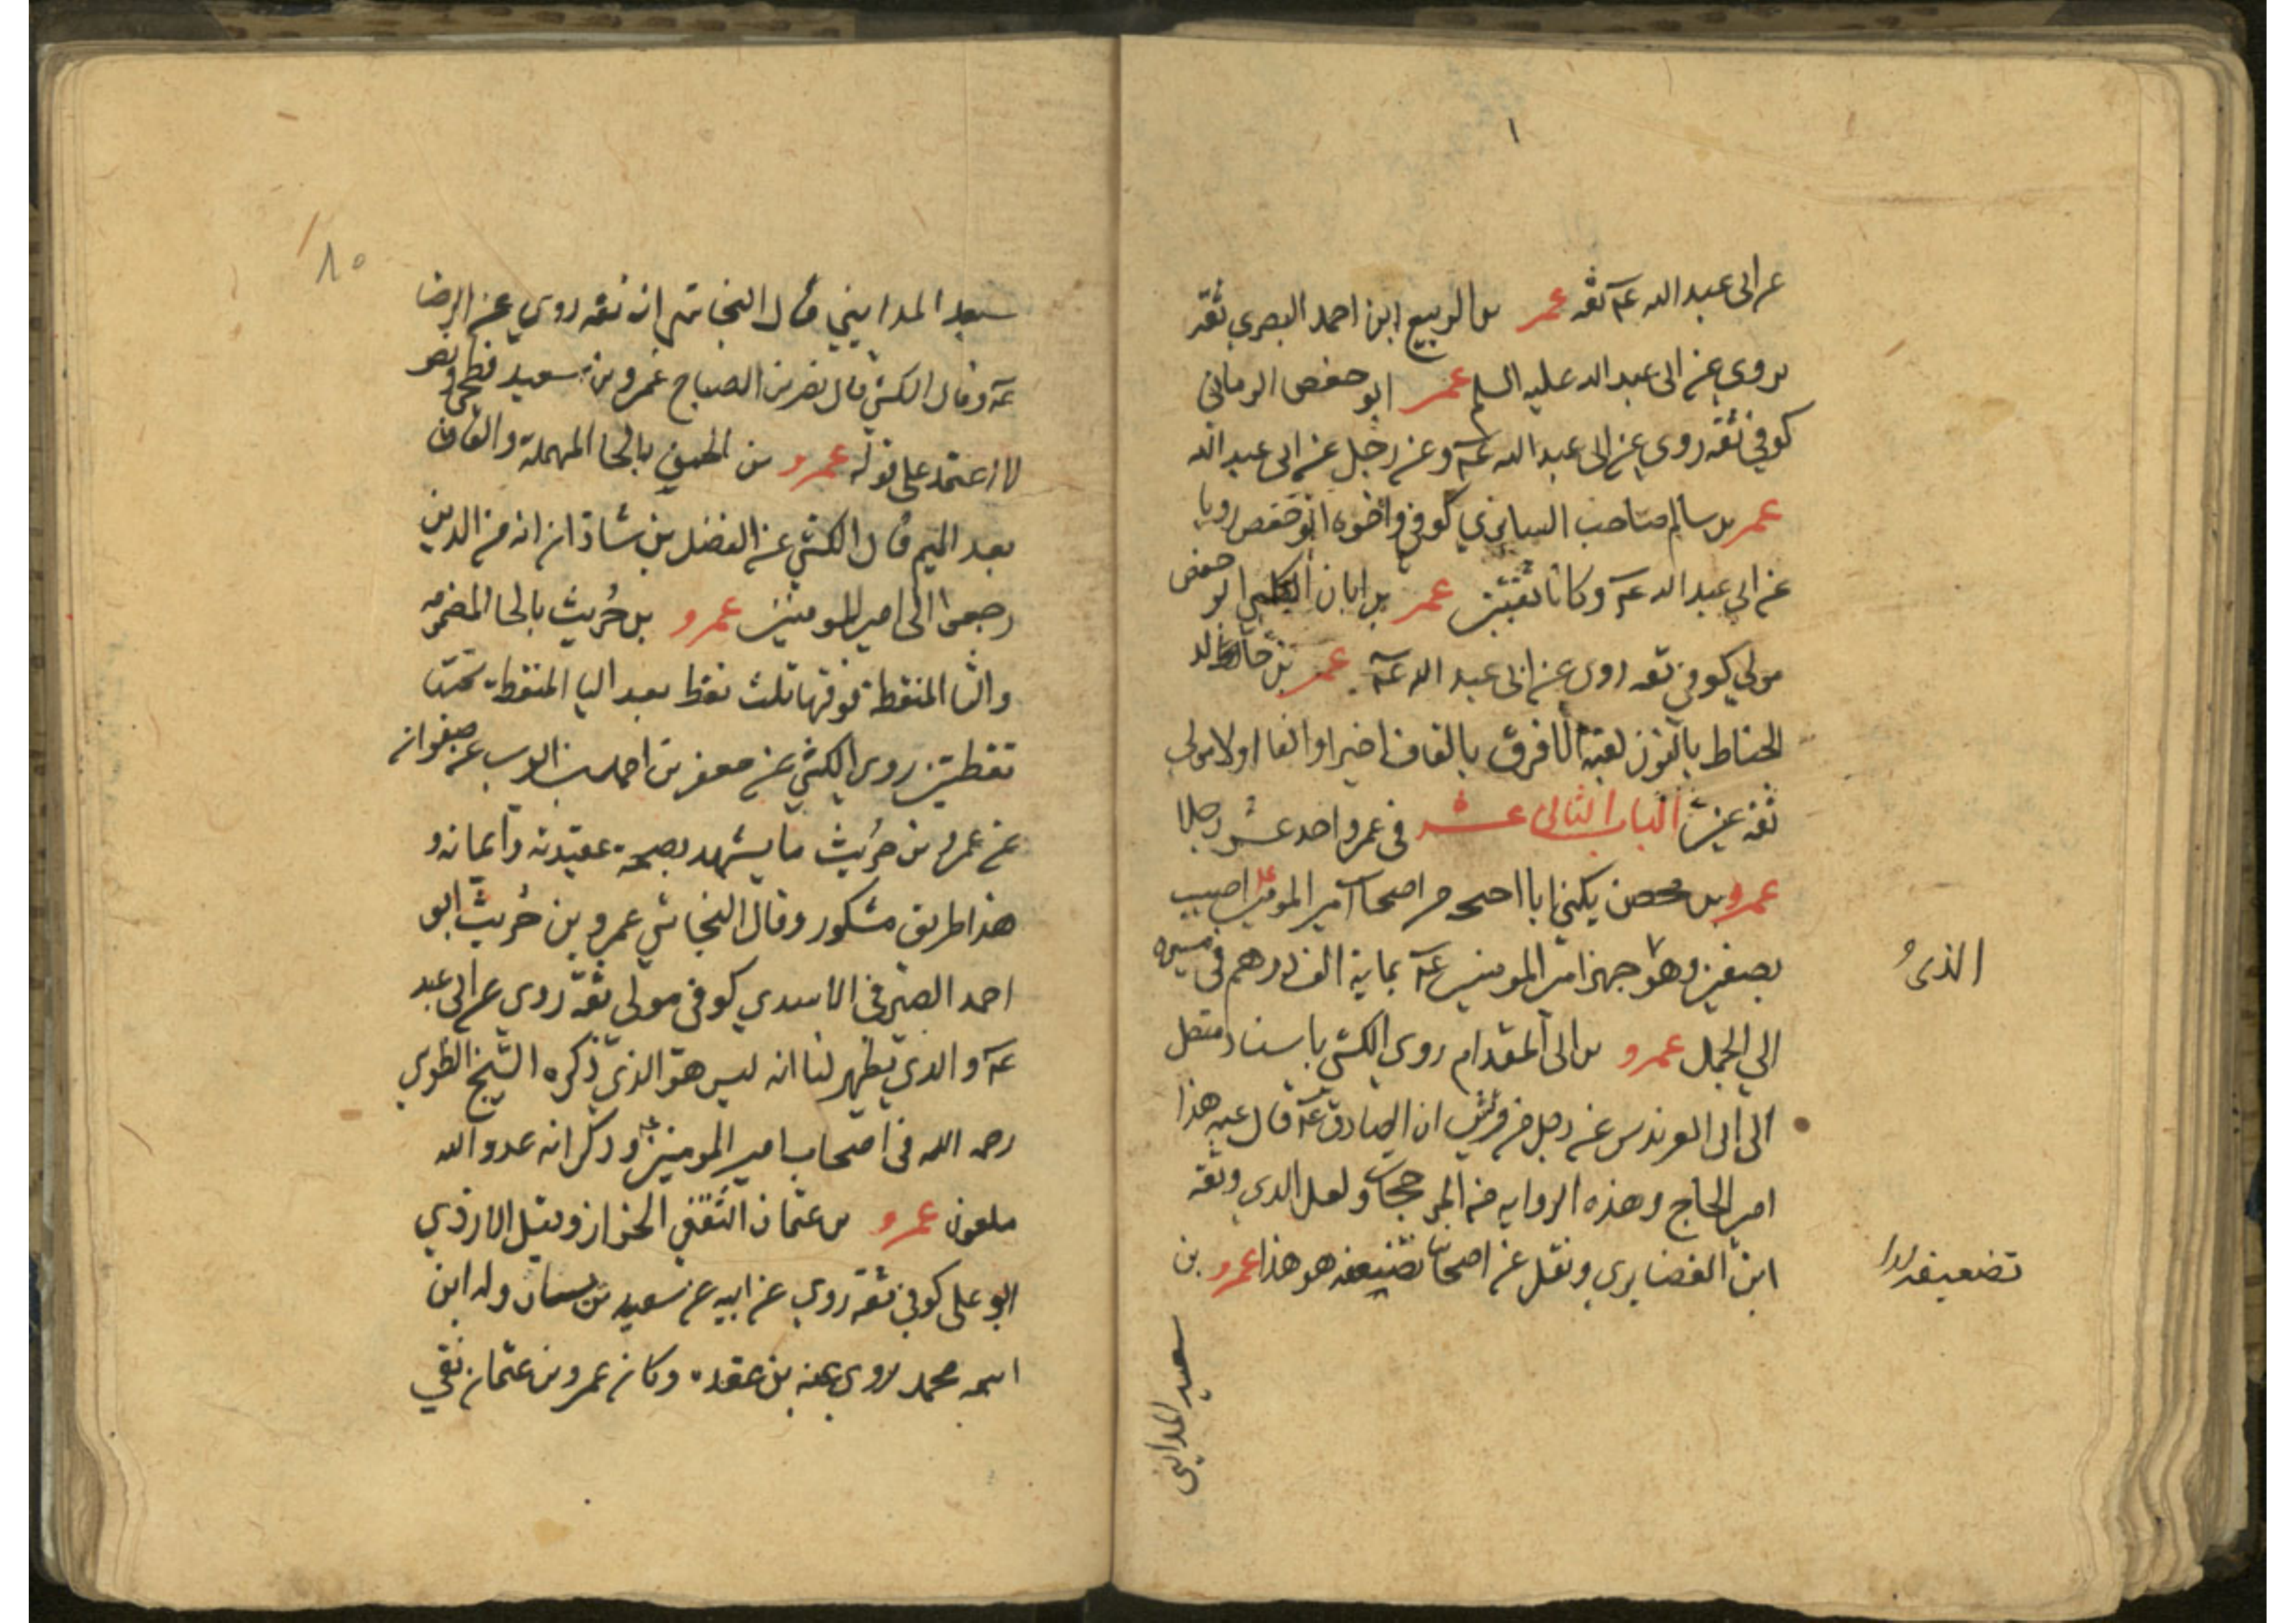 عن ابى عبد الله عۤم ثقه عمر بن الربيع ابن احمد البصرى ثقه
يروى عن ابى عبد الله عليه السلم عمر ابو حفص الرمانى
كوفي ثقه روى عن ابى عبد الله عۤم وعن رجل عن ابى عبد الله
عمر بن سالم صاحب السابري كوفى واخوه ابو حفص رويا
عن ابي عبد الله عۤم وكانا ثقتين عمر بن ابان الكلبي ابو حفص
مولي كوفى ثقه روى عن ابى عبد الله عۤم عمر بن خالد
الحناط بالنون لقبه الافرق بالقاف اخيرا والفا اولا مولى
ثقه عين الباب الثانى عشر فى عمرو احد عشر رجلا
عمرو بن محصن يكنى ابا احيحه من اصحاب امير المومنين عۤ اصيب
بصفين وهو جهز امير المومنين عۤم بماية الف درهم فى مسيره
الذى
الي الجمل عمرو بن ابى المقدام روى الكشى باسناد متصل
الى ابى العرندس عن رجل من قريش ان الصادق عۤم قال عنه هذا
امير الحاج وهذه الرواية من المرجحات ولعل الذي وثقه
ابن الغضايري ونقل عن اصحابنا تضعيفه هو هذا عمرو بن
تضعيفه
سعيد المدايني
٨٥
سعيد المدايني قال النجاشى انه ثقه روي عن الرضا
عۤم وقال الكشي قال نصر بن الصباح عمرو بن سعيد فطحى ونصر
لا اعتمد على قوله عمرو بن الحمق بالحا المهملة والقاف
بعد الميم قال الكشي عن الفضل بن شاذان انه من الذين
رجعوا الى امير المومنين عمرو بن حُريث بالحا المضمومه
والثا المنقطة فوقها ثلث نقط بعد اليا المنقطة تحتها
نقطتين روى الكشي عن جعفر بن احمد بن ايوب عن صفوان
عن عمرو بن حُريث ما يشهد بصحة عقيدته وايمانه و
هذا طريق مشكور وقال النجاشي عمرو بن حُريث ابو
احمد الصيرفى الاسدي كوفى مولى ثقة روى عن ابى عبد
عۤم والذي يظهر لنا انه ليس هو الذي ذكره الشيخ الطوسي
رحمه الله فى اصحاب امير المومنين عۤ وذكر انه عدو الله
ملعون عمرو بن عثمان الثقفي الخزاز وقيل الازدي
ابو على كوفي ثقة روي عن ابيه عن سعيد بن يسار وله ابن
اسمه محمد روى عنه بن عقده وكان عمرو بن عثمان نقي